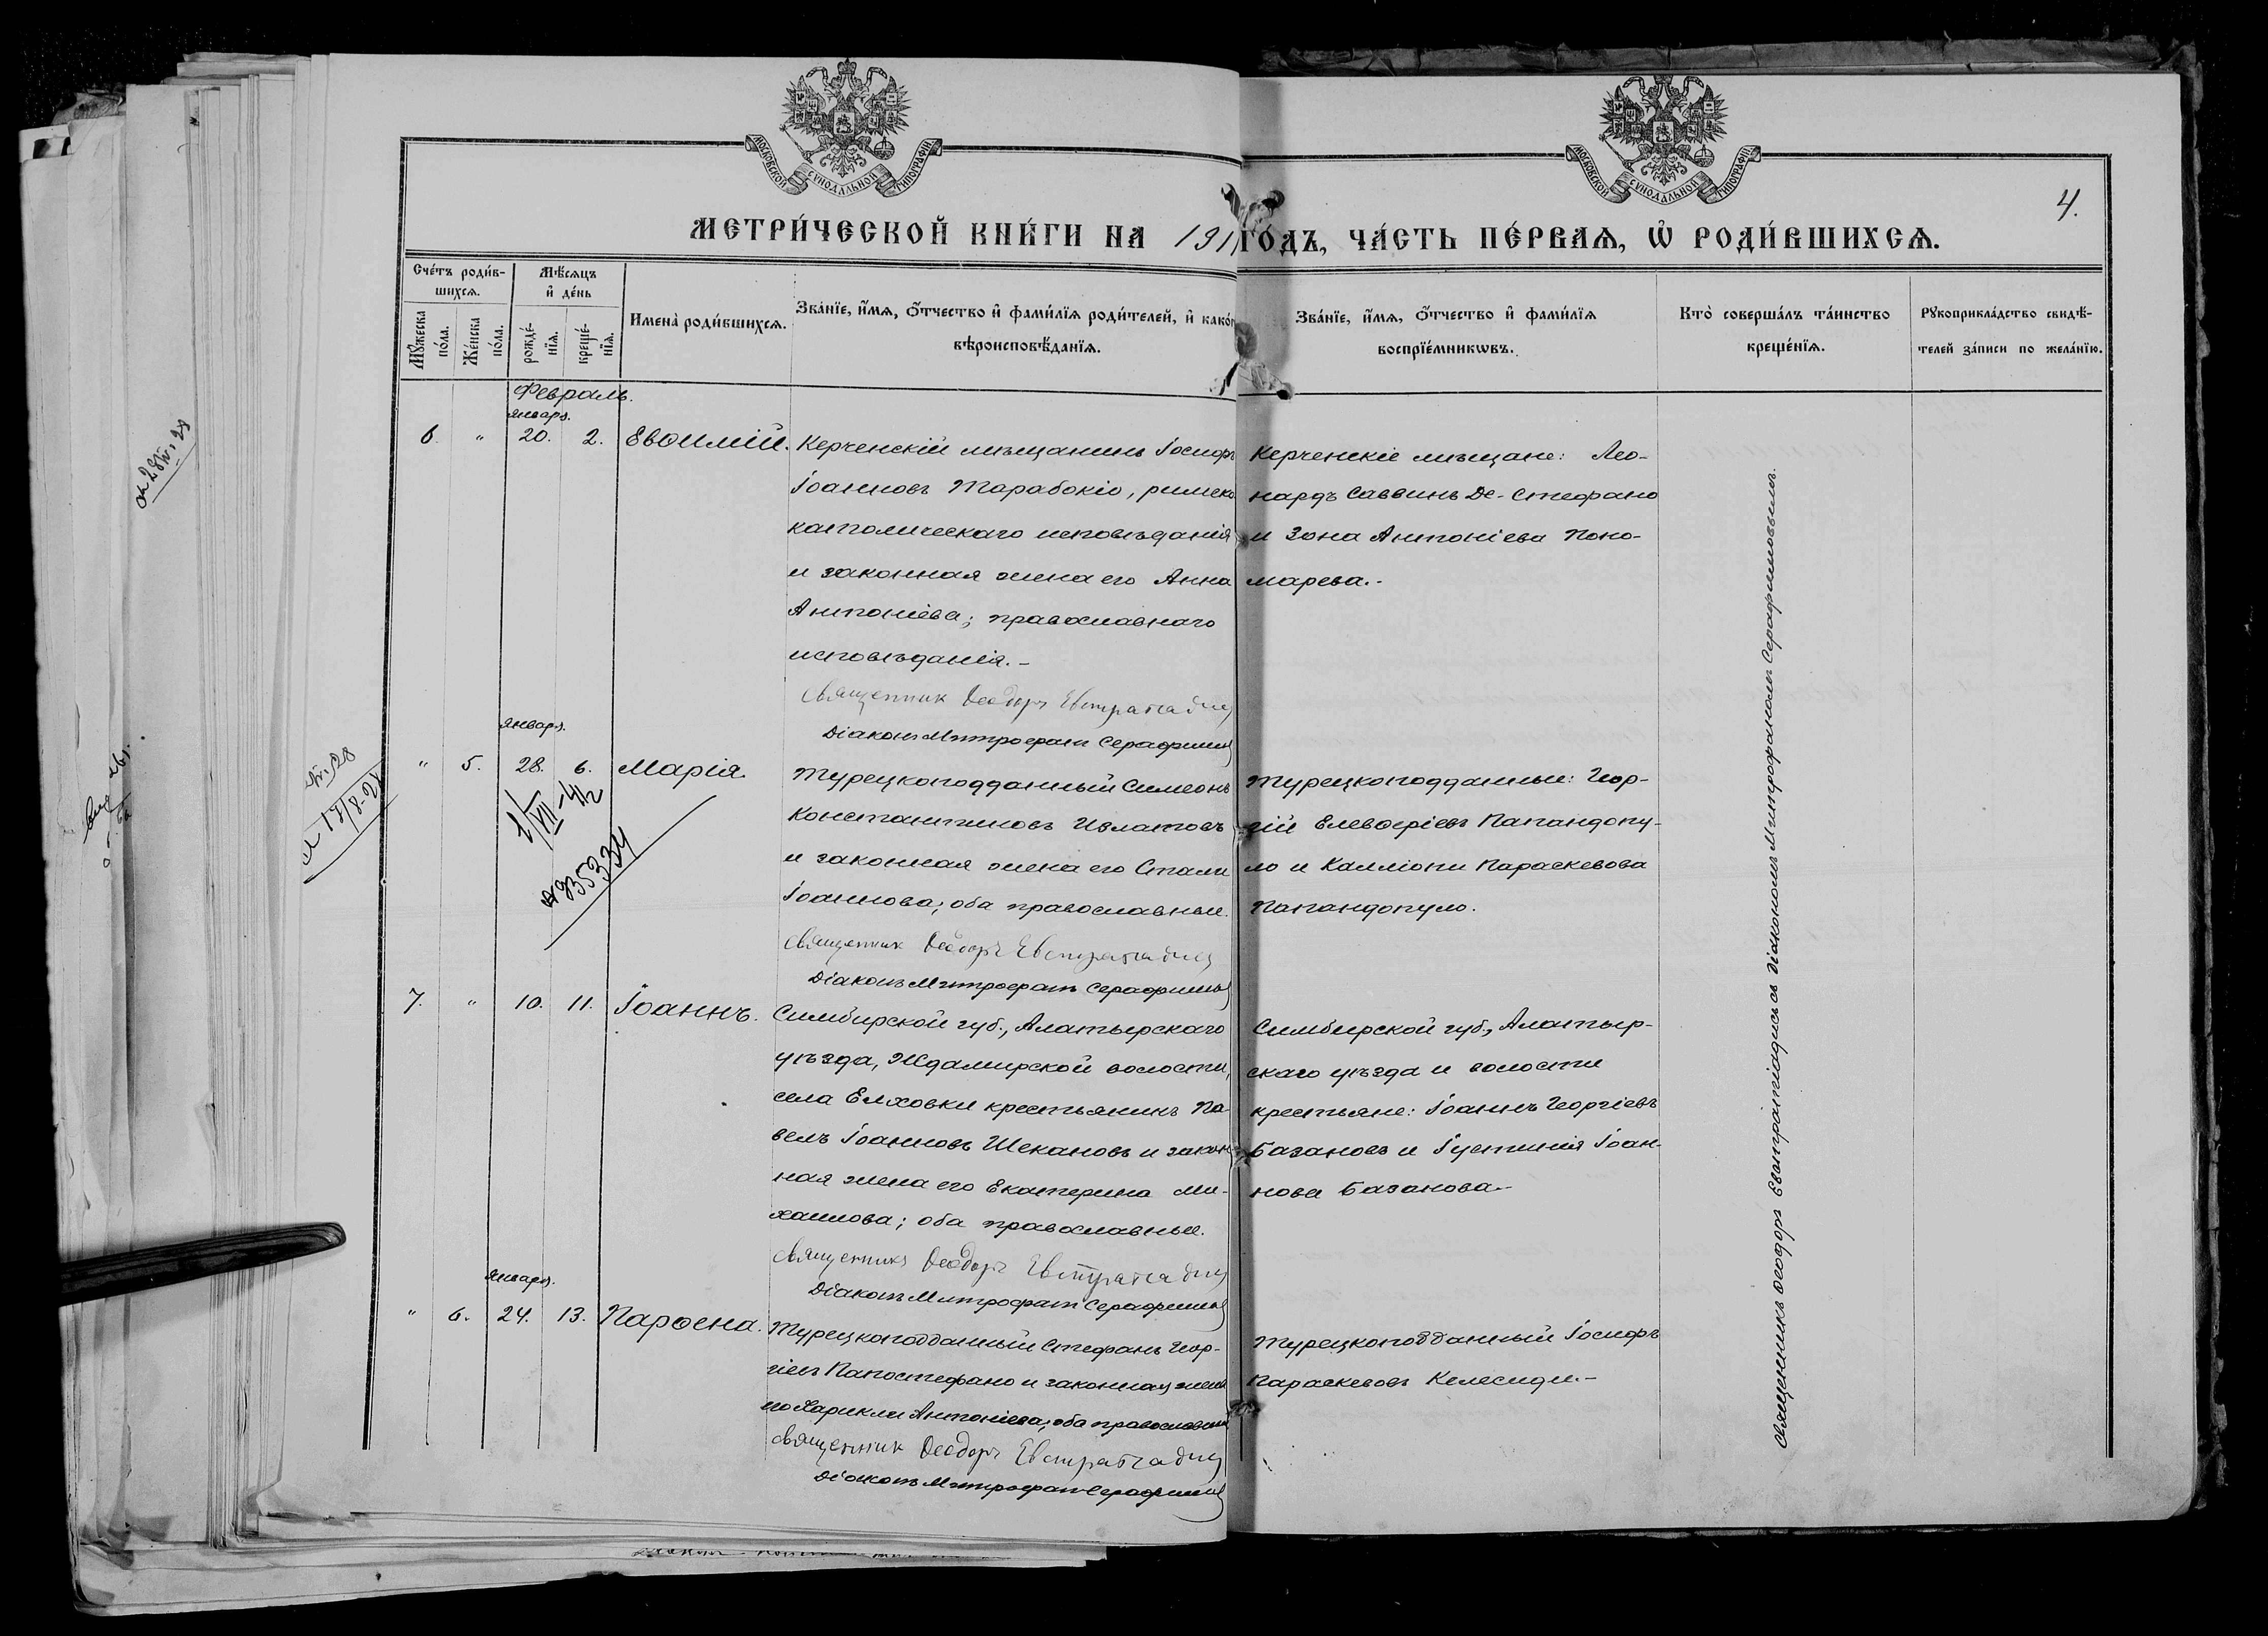 МОСКОВСКОЙ СѴНОДАЛЬНОЙ ТИПОГРАФІИ
МОСКОВСКОЙ СѴНОДАЛЬНОЙ ТИПОГРАФІИ
4.
МЕТРИ́ЧЕСКОЙ КНИ́ГИ НА 191
ГО́ДЪ, ЧА́СТЬ ПЕ́РВАѦ, Ѽ РОДИ́ВШИХСѦ.
Сче́тъ роди́в-
шихсѧ.
Мѣ́сѧцъ
и҆ де́нь
Мꙋ́жеска
по́ла.
Же́нска
по́ла.
рожде́-
нїѧ.
креще́-
нїѧ.
Имена̀ роди́вшихсѧ.
Зва́нїе, и҆́мѧ, ѻ҆́тчество и҆ фами́лїѧ роди́телей, и҆ како́г
вѣроисповѣ́данїѧ.
Зва́нїе, и҆́мѧ, ѻ҆́тчество и҆ фами́лїѧ
воспрїе́мникѡвъ.
Кто̀ соверша́лъ та́инство
креще́нїѧ.
Рꙋкоприкла́дство свидѣ́-
телей за́писи по жела́нїю.
Февраль.
января.
6. " 20. 2. Евѳимій.
Керченскій мѣщанинъ Іосифъ
Іоанновъ Тарабокіо, римско
католическаго исповѣданія
и законная жена его Анна
Антоніева; православнаго
исповѣданія.-
Священник Ѳеодоръ Евстратіадис
Діаконъ Митрофанъ Серафимов
Керченскіе мѣщане: Лео-
нардъ Саввинъ Де-Стефано
и Зона Антоніева Поно-
марева.-
января.
" 5. 28. 6. Марія.
Турецкоподданный Симеонъ
Константиновъ Ивлатовъ
и законная жена его Стали
Іоаннова; оба православные.
Священник Ѳеодоръ Евстратіадис
Діаконъ Митрофанъ Серафимов
Турецкоподданные: Геор-
гій Елевѳеріевъ Папандопу-
ло и Калліопи Параскевова
Папандопуло.
7. " 10. 11. Іоаннъ.
Симбирской губ., Алатырскаго
уѣзда, Ждамирской волости,
села Елховки крестьянинъ Па-
велъ Іоанновъ Шекановъ и закон-
ная жена его Екатерина Ми-
хаилова; оба православные.
Священникъ Ѳеодоръ Евстратіадис
Діаконъ Митрофанъ Серафимов
Симбирской губ., Алатыр-
скаго уѣзда и волости
крестьяне: Іоаннъ Георгіевъ
Базановъ и Іустинія Іоан-
нова Базанова.-
января.
" 6. 24. 13. Парѳена.
Турецкоподданный Стефанъ Геор-
гіевъ Папостефано и законная жена
его Харикли Антоніева; оба православные
Священник Ѳеодоръ Евстратіадис
Діаконъ Митрофанъ Серафимов
Турецкоподданный Іосифъ
Параскевовъ Келесиди.-
Священникъ Ѳеодоръ Евстратіадисъ съ діакономъ Митрофаномъ Серафимовымъ.